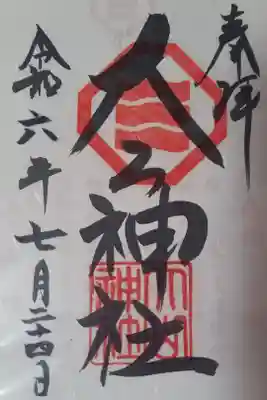 奉拝
大山神社
大山神社
令和六年七月二十四日